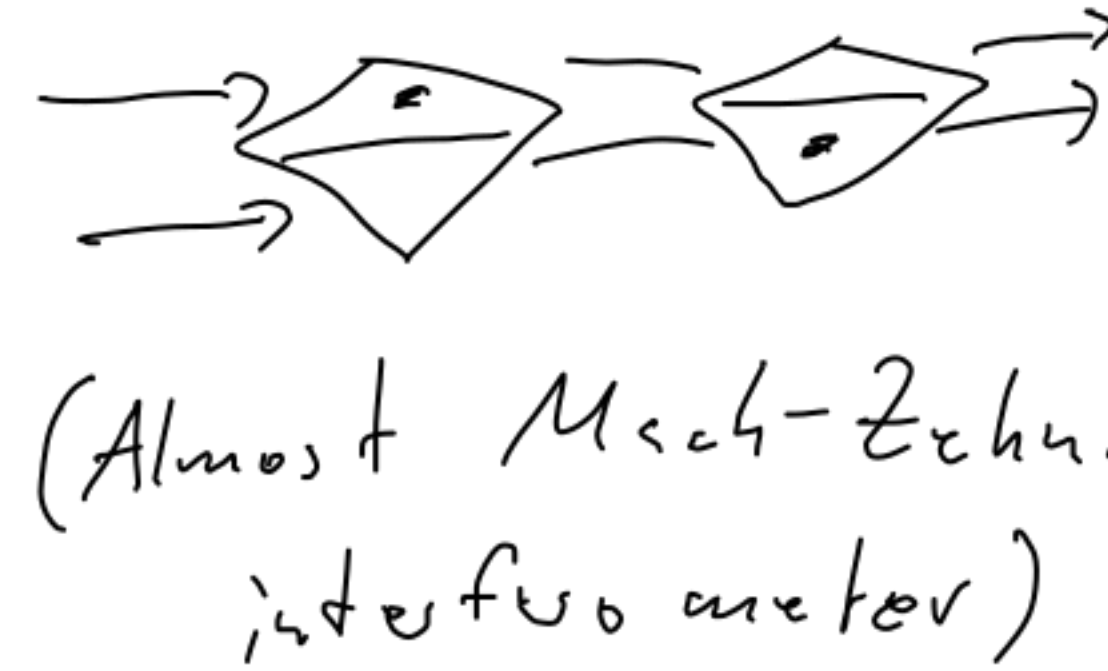 (Almost Mach-Zehn.
interferometer)